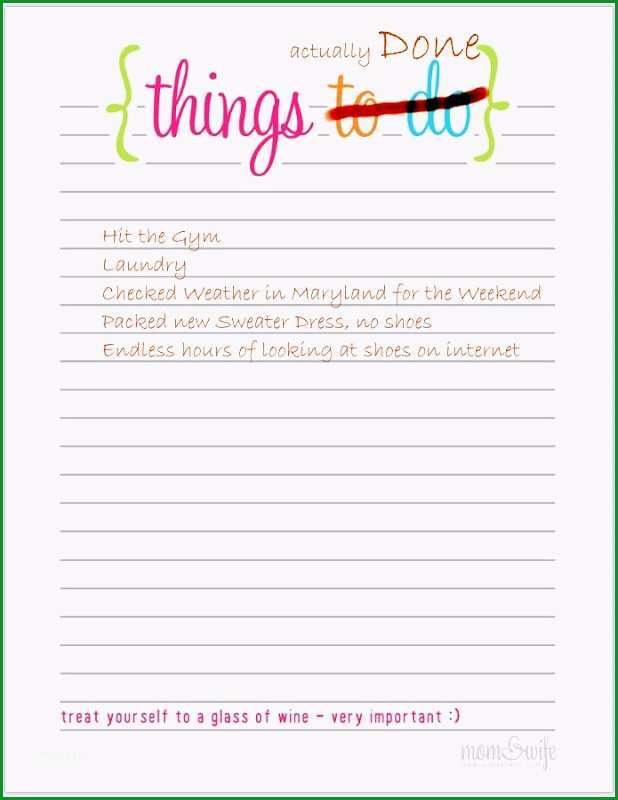 actually Done
{things to do}
Hit the Gym
Laundry
Checked Weather in Maryland for the Weekend
Packed new Sweater Dress, no shoes
Endless hours of looking at shoes on internet
treat yourself to a glass of wine - very important :)
mom&wife